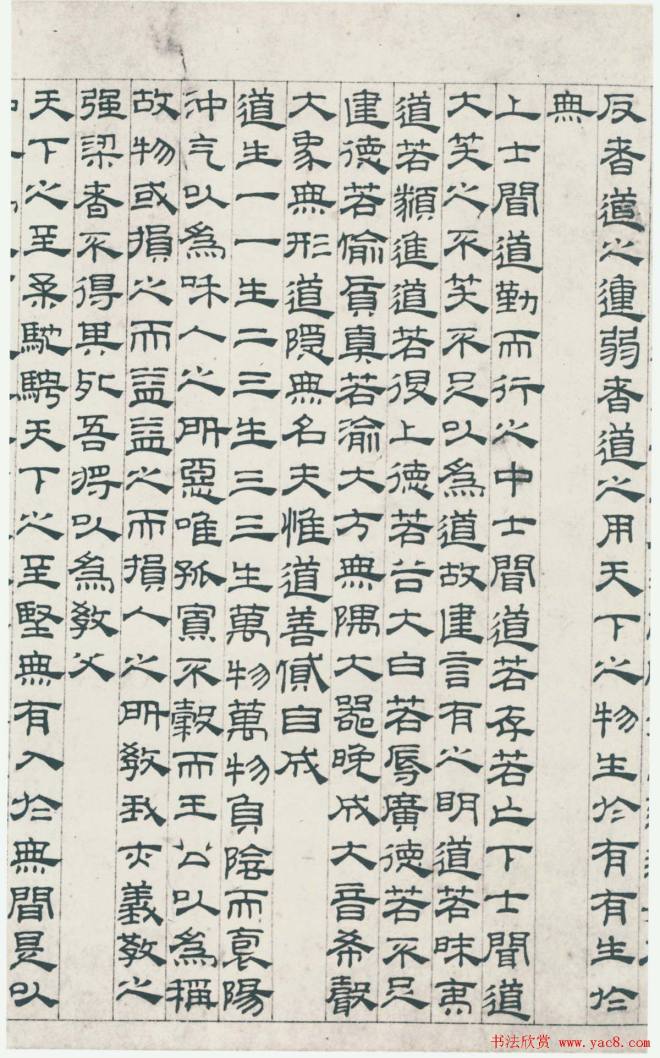 反者道之運弱者道之用天下之物生於有有生於
無
上士聞道勤而行之中士聞道若存若亡下士聞道
大笑之不笑不足以為道故建言有之明道若昧夷
道若纇進道若退上德若谷大白若辱廣德若不足
建德若偷質真若渝大方無隅大器晚成大音希聲
大象無形道隱無名夫惟道善貸自成
道生一一生二二生三三生萬物萬物負陰而袌陽
沖气以為咊人之所惡唯孤寡不穀而王公以為稱
故物或損之而益益之而損人之所教我亦義教之
强梁者不得其死吾將以為教父
天下之至柔馳騁天下之至堅無有入於無間是以
书法欣赏 www.yac8.com